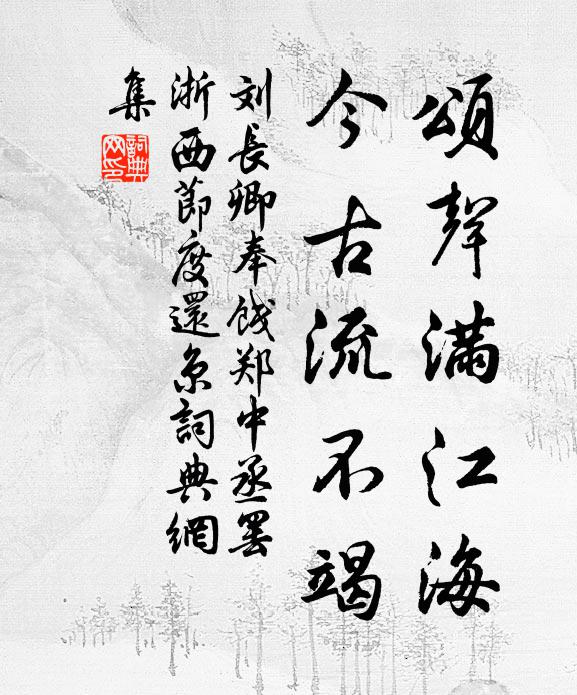 頌聲滿江海
今古流不竭
刘長卿奉餞郑中丞罢
浙西節度還京詞典網
集
詞典
网印